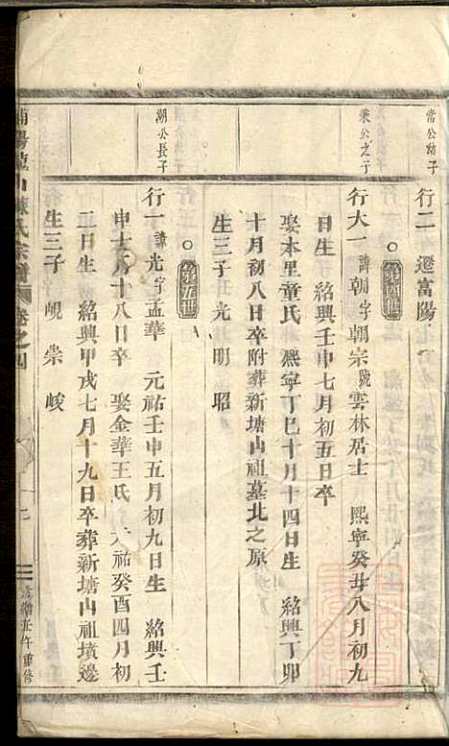 常公幼子
行二 遷富陽
第四世
秉公之子
行大一 諱朝字朝宗號雲林居士 熙寧癸丑八月初九
日生 紹興壬申七月初五日卒
娶本里童氏 熙寧丁巳十月十四日生 紹興丁卯
十月初八日卒附葬新塘山祖墓北之原
生三子 光 明 昭
第五世
朝公長子
行一 諱光字孟華 元祐壬申五月初九日生 紹興壬
申十一月十八日卒 娶金華王氏 元祐癸酉四月初
二日生 紹興甲戌七月十九日卒葬新塘山祖墳邊
生三子 峴 崇 峻
陽 山陳氏宗譜 卷之四
午重修